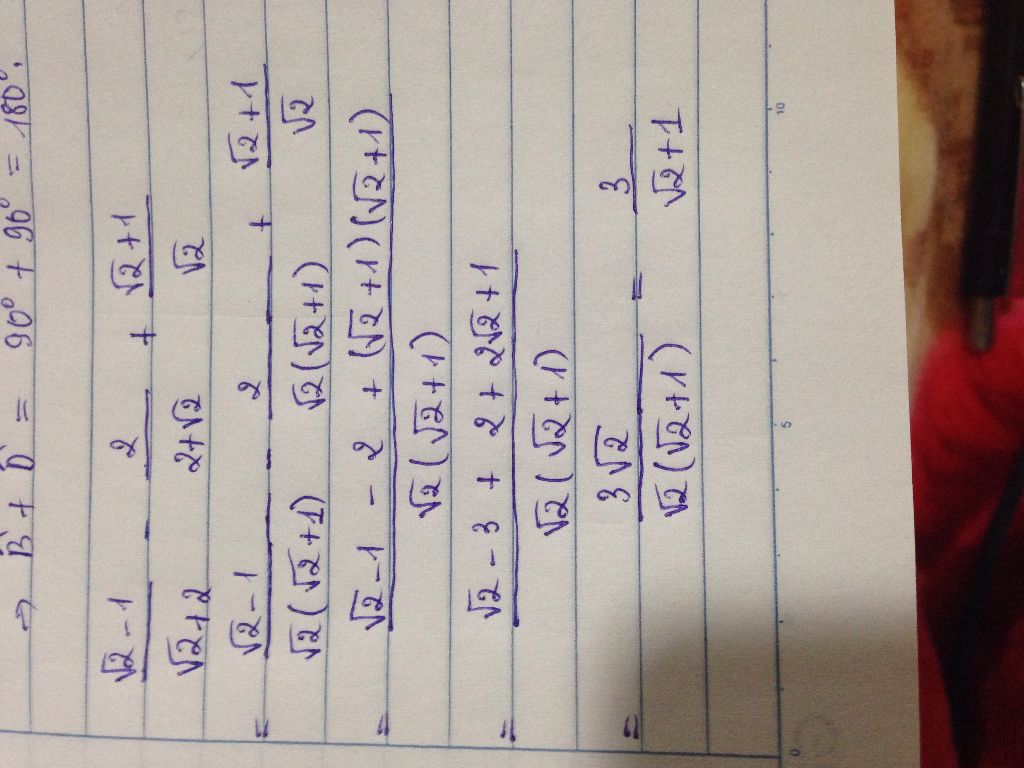 → B̂ + D̂ = 90° + 90° = 180°.
(√2-1)/(√2+2) - 2/(2+√2) + (√2+1)/√2
= (√2-1)/(√2(√2+1)) - 2/(√2(√2+1)) + (√2+1)/√2
= (√2-1 - 2 + (√2+1)(√2+1))/(√2(√2+1))
= (√2-3 + 2 + 2√2+1)/(√2(√2+1))
= 3√2/(√2(√2+1)) = 3/(√2+1)
0 5 10